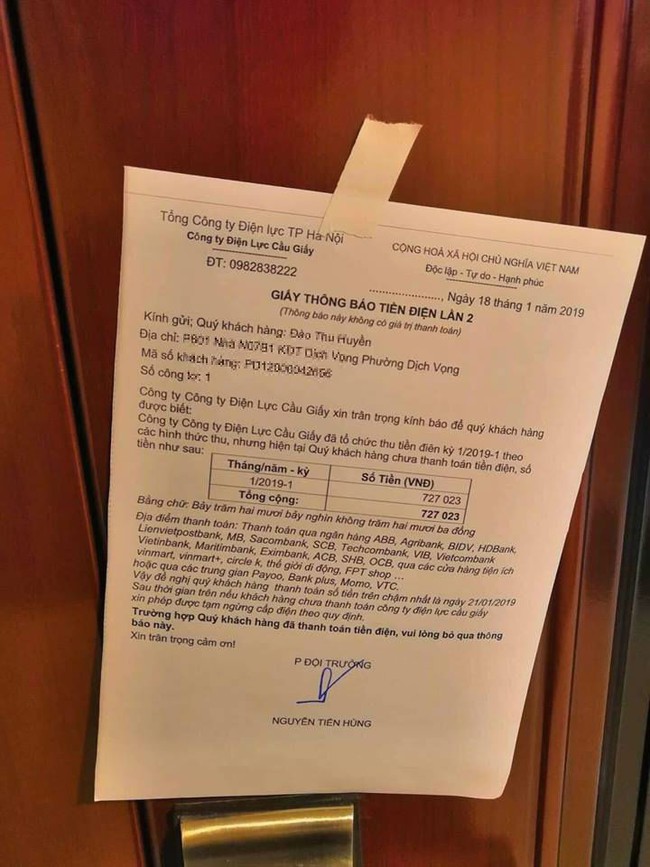 Tổng Công ty Điện lực TP Hà Nội
Công ty Điện Lực Cầu Giấy
ĐT: 0982838222
CỘNG HOÀ XÃ HỘI CHỦ NGHĨA VIỆT NAM
Độc lập - Tự do - Hạnh phúc
......................., Ngày 18 tháng 1 năm 2019
GIẤY THÔNG BÁO TIỀN ĐIỆN LẦN 2
(Thông báo này không có giá trị thanh toán)
Kính gửi; Quý khách hàng: Đào Thu Huyền
Địa chỉ: P601 Nhà N07B1 KĐT Dịch Vọng Phường Dịch Vọng
Mã số khách hàng:
Số công tơ: 1
Công ty Công ty Điện Lực Cầu Giấy xin trân trọng kính báo để quý khách hàng
được biết:
Công ty Công ty Điện Lực Cầu Giấy đã tổ chức thu tiền điên kỳ 1/2019-1 theo
các hình thức thu, nhưng hiện tại Quý khách hàng chưa thanh toán tiền điện, số
tiền như sau:
Tháng/năm - kỳ Số Tiền (VNĐ)
1/2019-1 727 023
Tổng cộng: 727 023
Bằng chữ: Bảy trăm hai mươi bảy nghìn không trăm hai mươi ba đồng
Địa điểm thanh toán: Thanh toán qua ngân hàng ABB, Agribank, BIDV, HDBank,
Lienvietpostbank, MB, Sacombank, SCB, Techcombank, VIB, Vietcombank
Vietinbank, Maritimbank, Eximbank, ACB, SHB, OCB, qua các cửa hàng tiện ích
vinmart, vinmart+, circle k, thế giới di động, FPT shop ...
hoặc qua các trung gian Payoo, Bank plus, Momo, VTC.
Vậy đề nghị quý khách hàng thanh toán số tiền trên chậm nhất là ngày 21/01/2019
Sau thời gian trên nếu khách hàng chưa thanh toán công ty điện lực cầu giấy
xin phép được tạm ngừng cấp điện theo quy định.
Trường hợp Quý khách hàng đã thanh toán tiền điện, vui lòng bỏ qua thông
báo này.
Xin trân trọng cảm ơn!
P ĐỘI TRƯỞNG
NGUYỄN TIẾN HÙNG